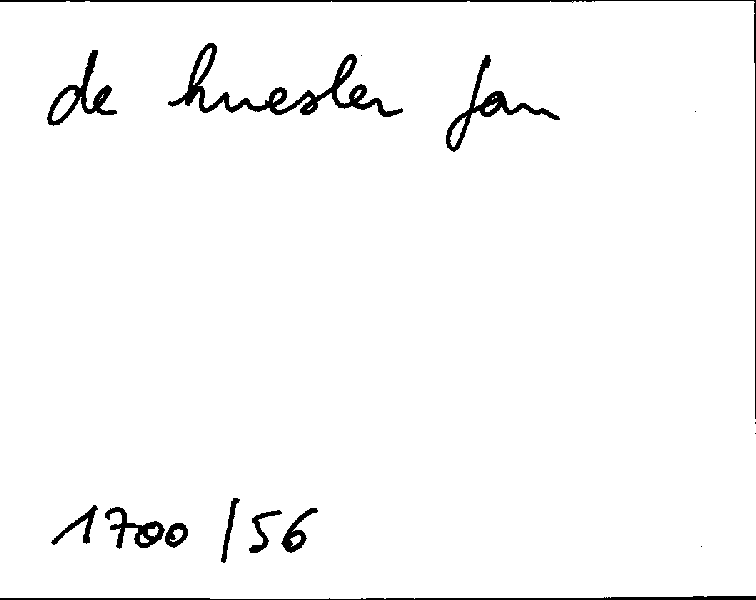 de knesler Jan
1700 / 56